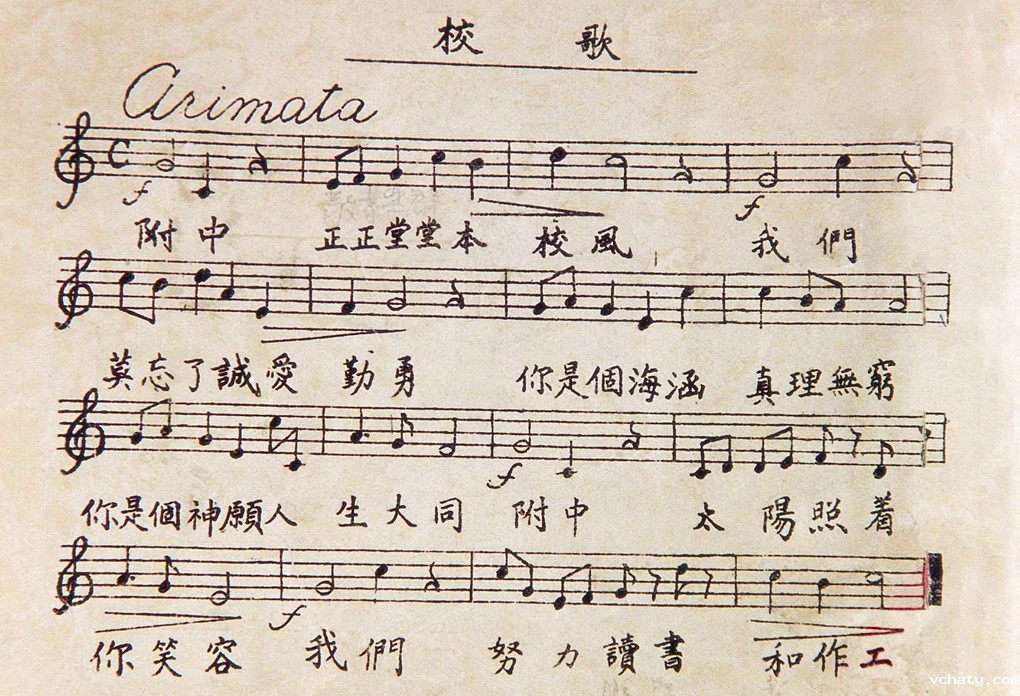 校歌
Arimata
C
f f
附中 正正堂堂本 校風 我們
莫忘了誠愛 勤勇 你是個海涵 真理無窮
f
你是個神願人 生大同 附中 太陽照着
f
你笑容 我們 努力讀書 和作工
vchaty.com